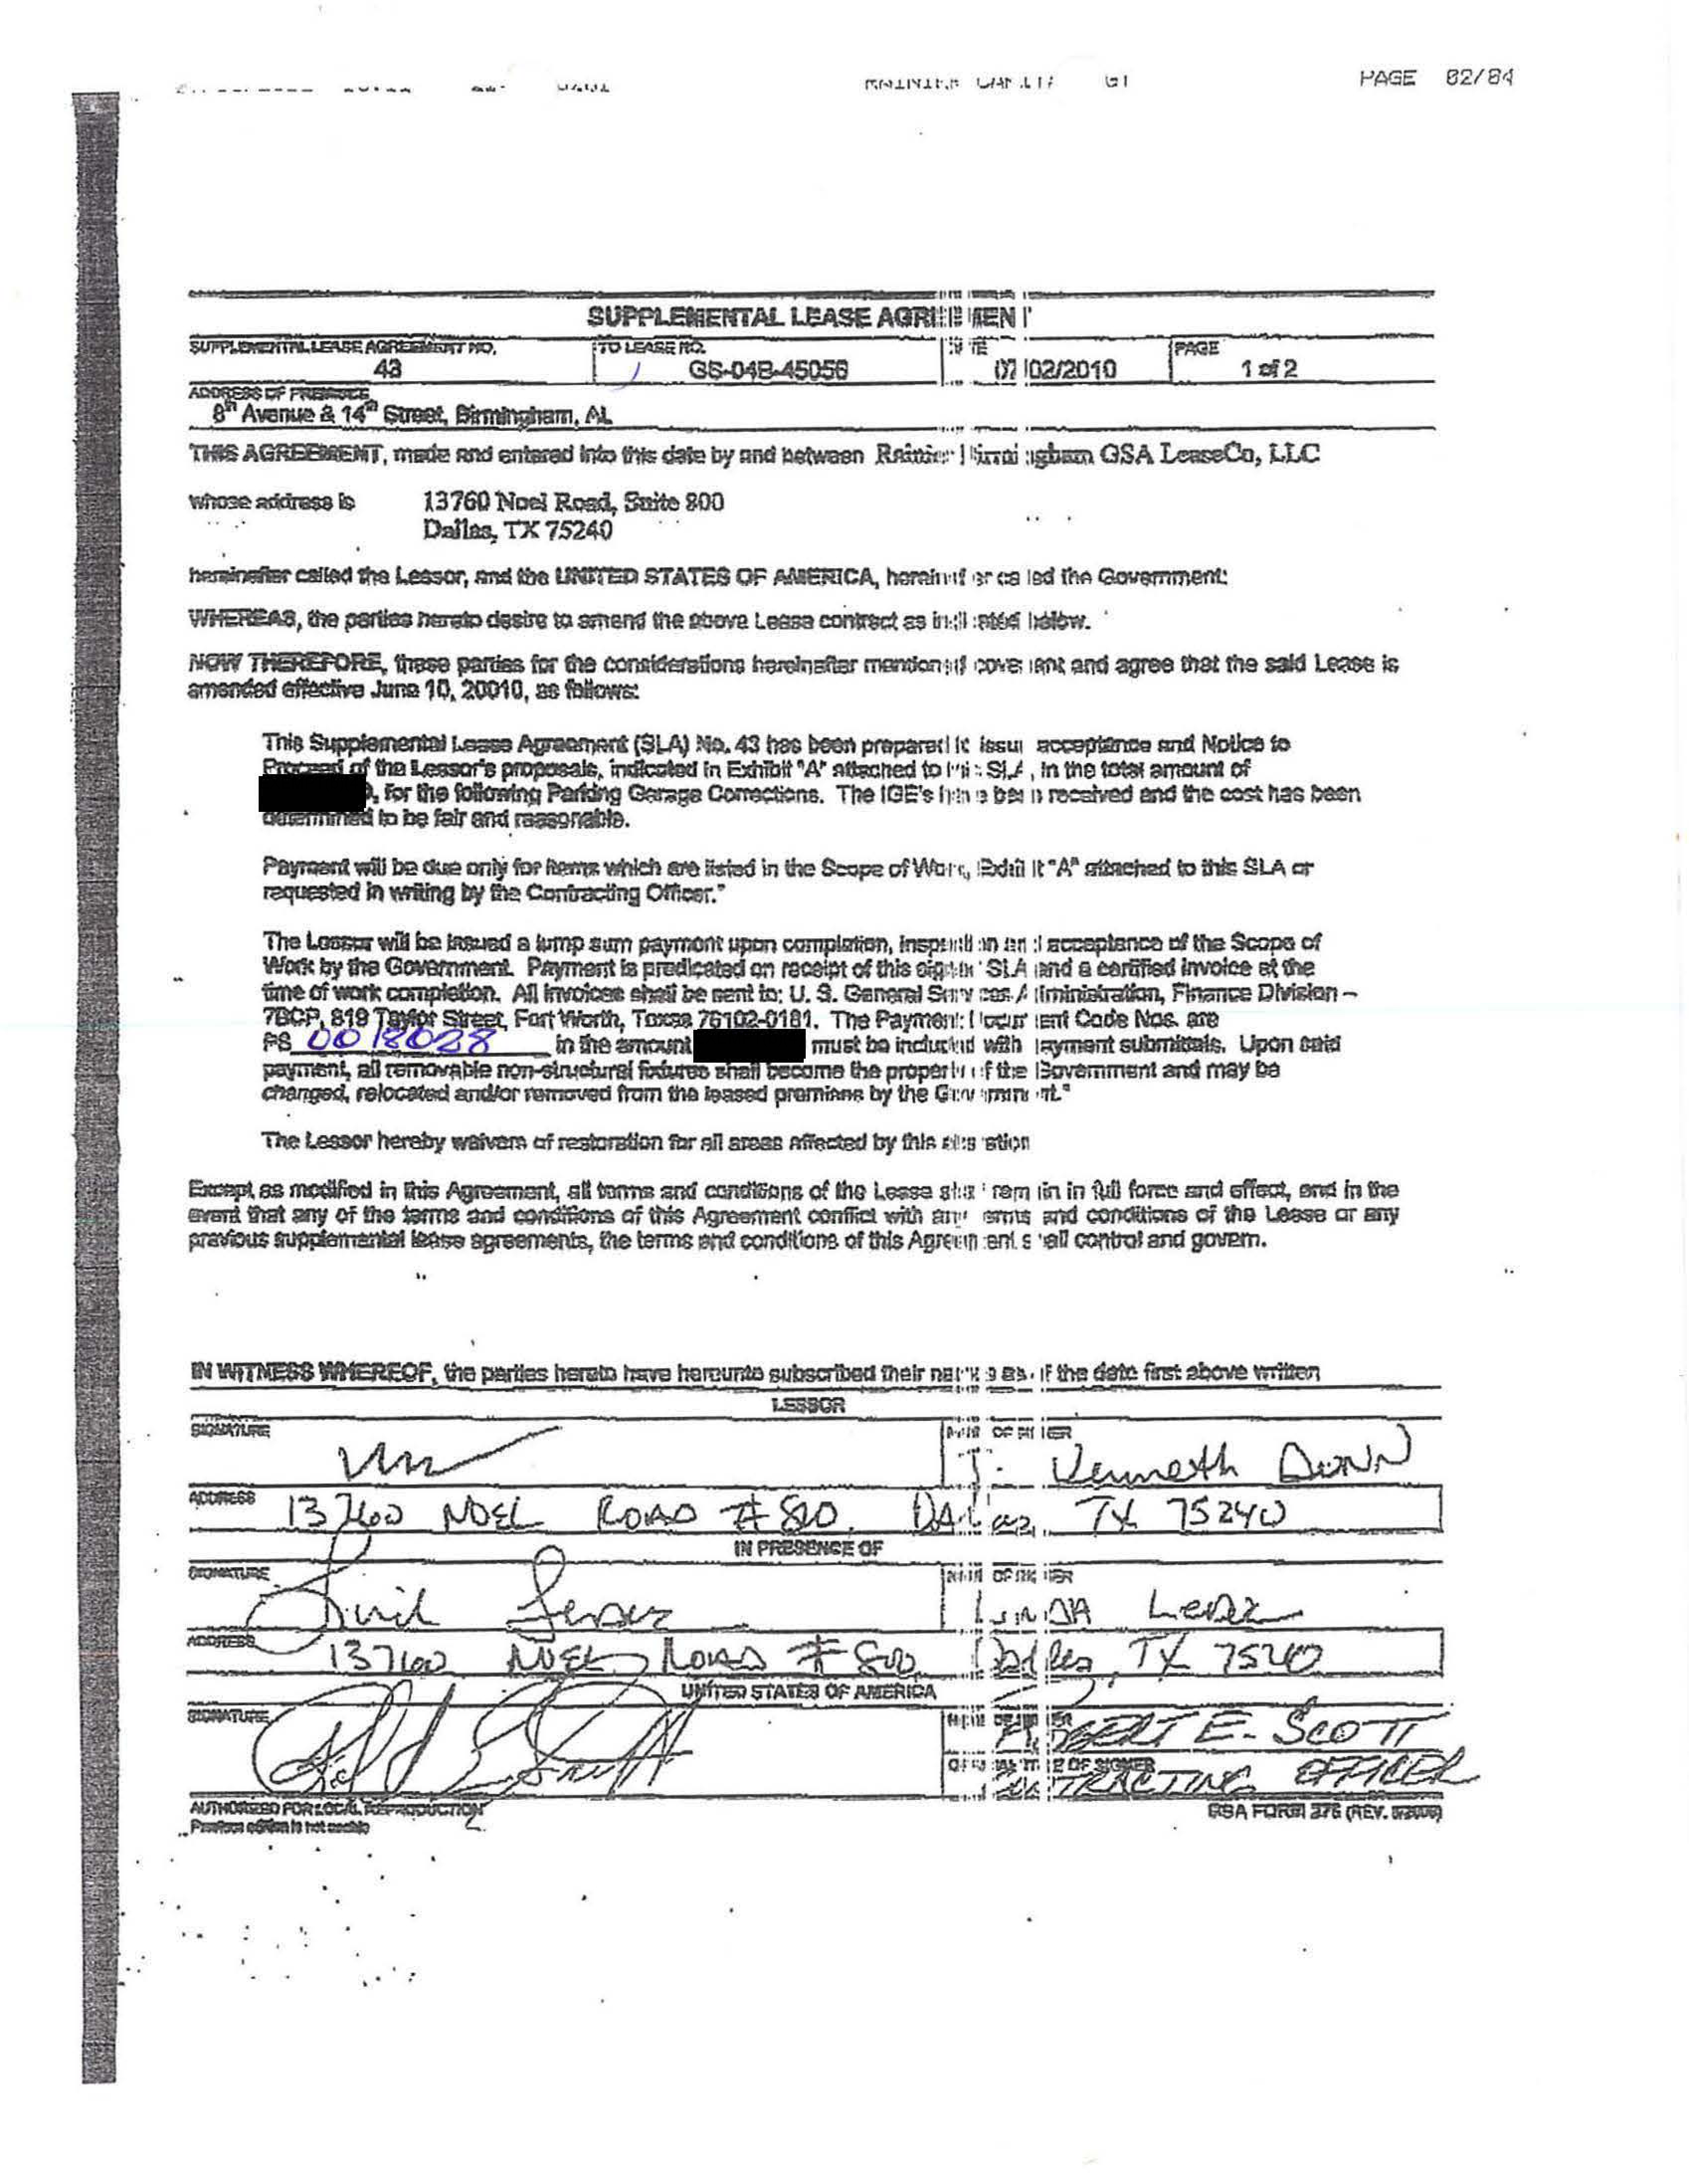 PAGE 02/84
SUPPLEMENTAL LEASE AGREEMENT
SUPPLEMENTAL LEASE AGREEMENT NO. TO LEASE NO. DATE PAGE
43 GS-04B-45056 07/02/2010 1 of 2
ADDRESS OF PREMISES
8th Avenue & 14th Street, Birmingham, AL
THIS AGREEMENT, made and entered into this date by and between Rainier Birmingham GSA LeaseCo, LLC
whose address is 13760 Noel Road, Suite 800
Dallas, TX 75240
hereinafter called the Lessor, and the UNITED STATES OF AMERICA, hereinafter called the Government:
WHEREAS, the parties hereto desire to amend the above Lease contract as indicated below.
NOW THEREFORE, these parties for the considerations hereinafter mentioned covenant and agree that the said Lease is
amended effective June 10, 20010, as follows:
This Supplemental Lease Agreement (SLA) No. 43 has been prepared to issue acceptance and Notice to
Proceed of the Lessor's proposals, indicated in Exhibit "A" attached to this SLA, in the total amount of
, for the following Parking Garage Corrections. The IGE's have been received and the cost has been
determined to be fair and reasonable.
Payment will be due only for items which are listed in the Scope of Work, Exhibit "A" attached to this SLA or
requested in writing by the Contracting Officer."
The Lessor will be issued a lump sum payment upon completion, inspection and acceptance of the Scope of
Work by the Government. Payment is predicated on receipt of this SLA and a certified invoice at the
time of work completion. All invoices shall be sent to: U. S. General Services Administration, Finance Division –
7BCP, 819 Taylor Street, Fort Worth, Texas 76102-0181. The Payment Document Code Nos. are
PS 0018028 in the amount must be included with payment submittals. Upon said
payment, all removable non-structural fixtures shall become the property of the Government and may be
changed, relocated and/or removed from the leased premises by the Government."
The Lessor hereby waivers of restoration for all areas affected by this alteration
Except as modified in this Agreement, all terms and conditions of the Lease shall remain in full force and effect, and in the
event that any of the terms and conditions of this Agreement conflict with any terms and conditions of the Lease or any
previous supplemental lease agreements, the terms and conditions of this Agreement shall control and govern.
IN WITNESS WHEREOF, the parties hereto have hereunto subscribed their names as of the date first above written
LESSOR
SIGNATURE NAME OF SIGNER
J. Kenneth Dunn
ADDRESS 13760 NOEL ROAD # 800, Dallas, TX 75240
IN PRESENCE OF
SIGNATURE NAME OF SIGNER
LINDA
ADDRESS 13760 NOEL ROAD # 800 Dallas, TX 75240
UNITED STATES OF AMERICA
SIGNATURE NAME OF SIGNER
ROBERT E. SCOTT
OFFICIAL TITLE OF SIGNER
CONTRACTING OFFICER
AUTHORIZED FOR LOCAL REPRODUCTION GSA FORM 276 (REV.
Previous edition is not usable